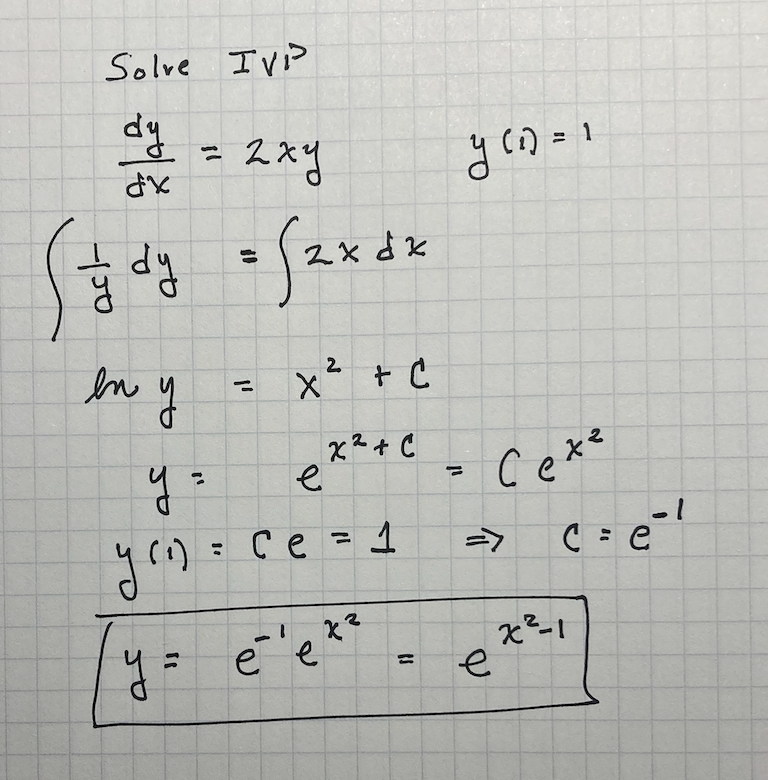 Solve IVP
dy/dx = 2xy y(1) = 1
∫ 1/y dy = ∫ 2x dx
ln y = x² + C
y = e^{x²+C} = C e^{x²}
y(1) = C e = 1 ⇒ C = e^{-1}
y = e^{-1} e^{x²} = e^{x²-1}